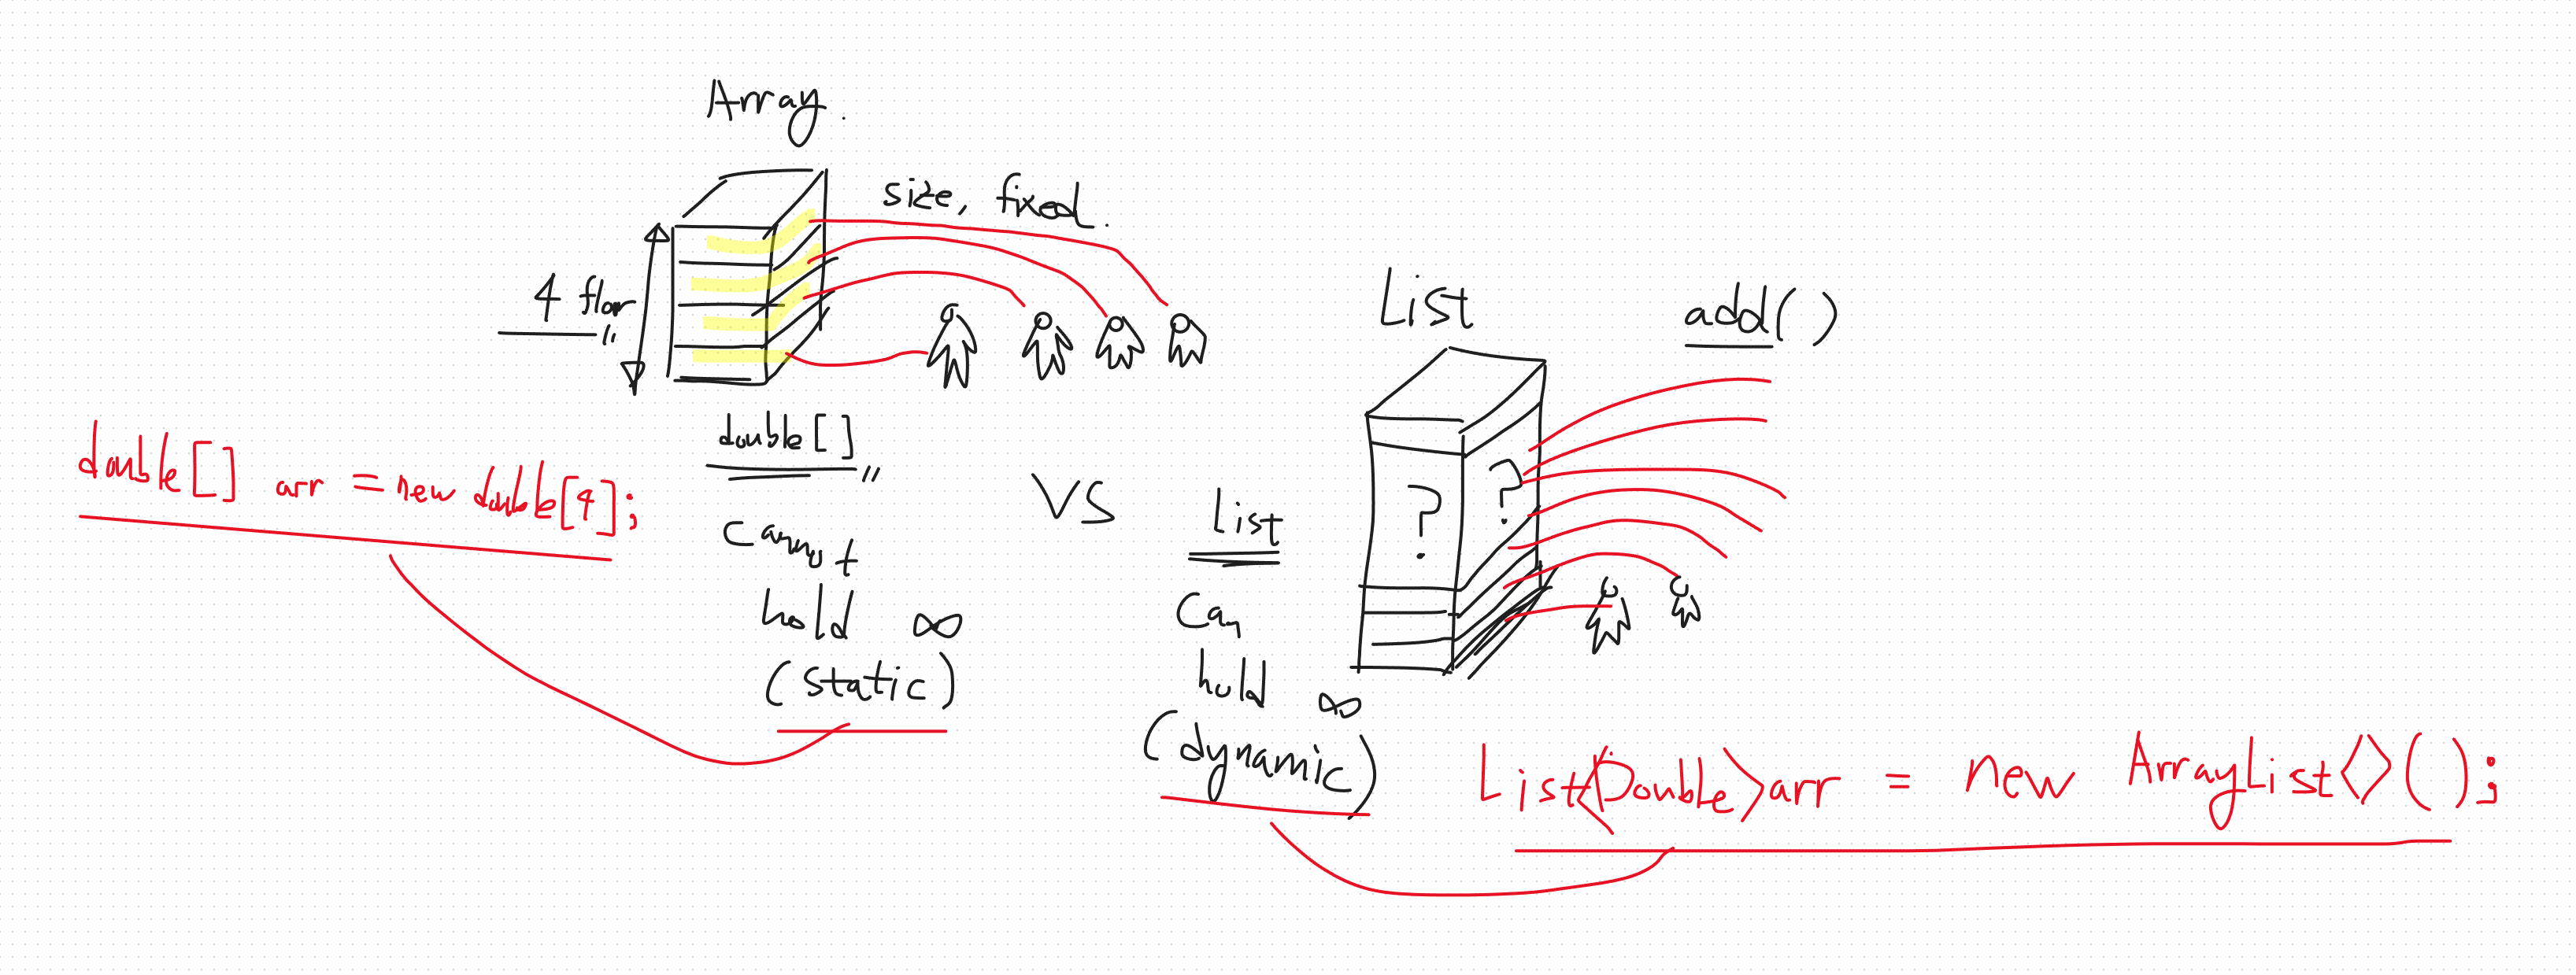 Array.
size, fixed.
4 floor
double[]
double[] arr = new double[4];
cannot
hold ∞
(static)
VS
List
add()
? ?
List
can
hold ∞
(dynamic)
List<Double> arr = new ArrayList<>();